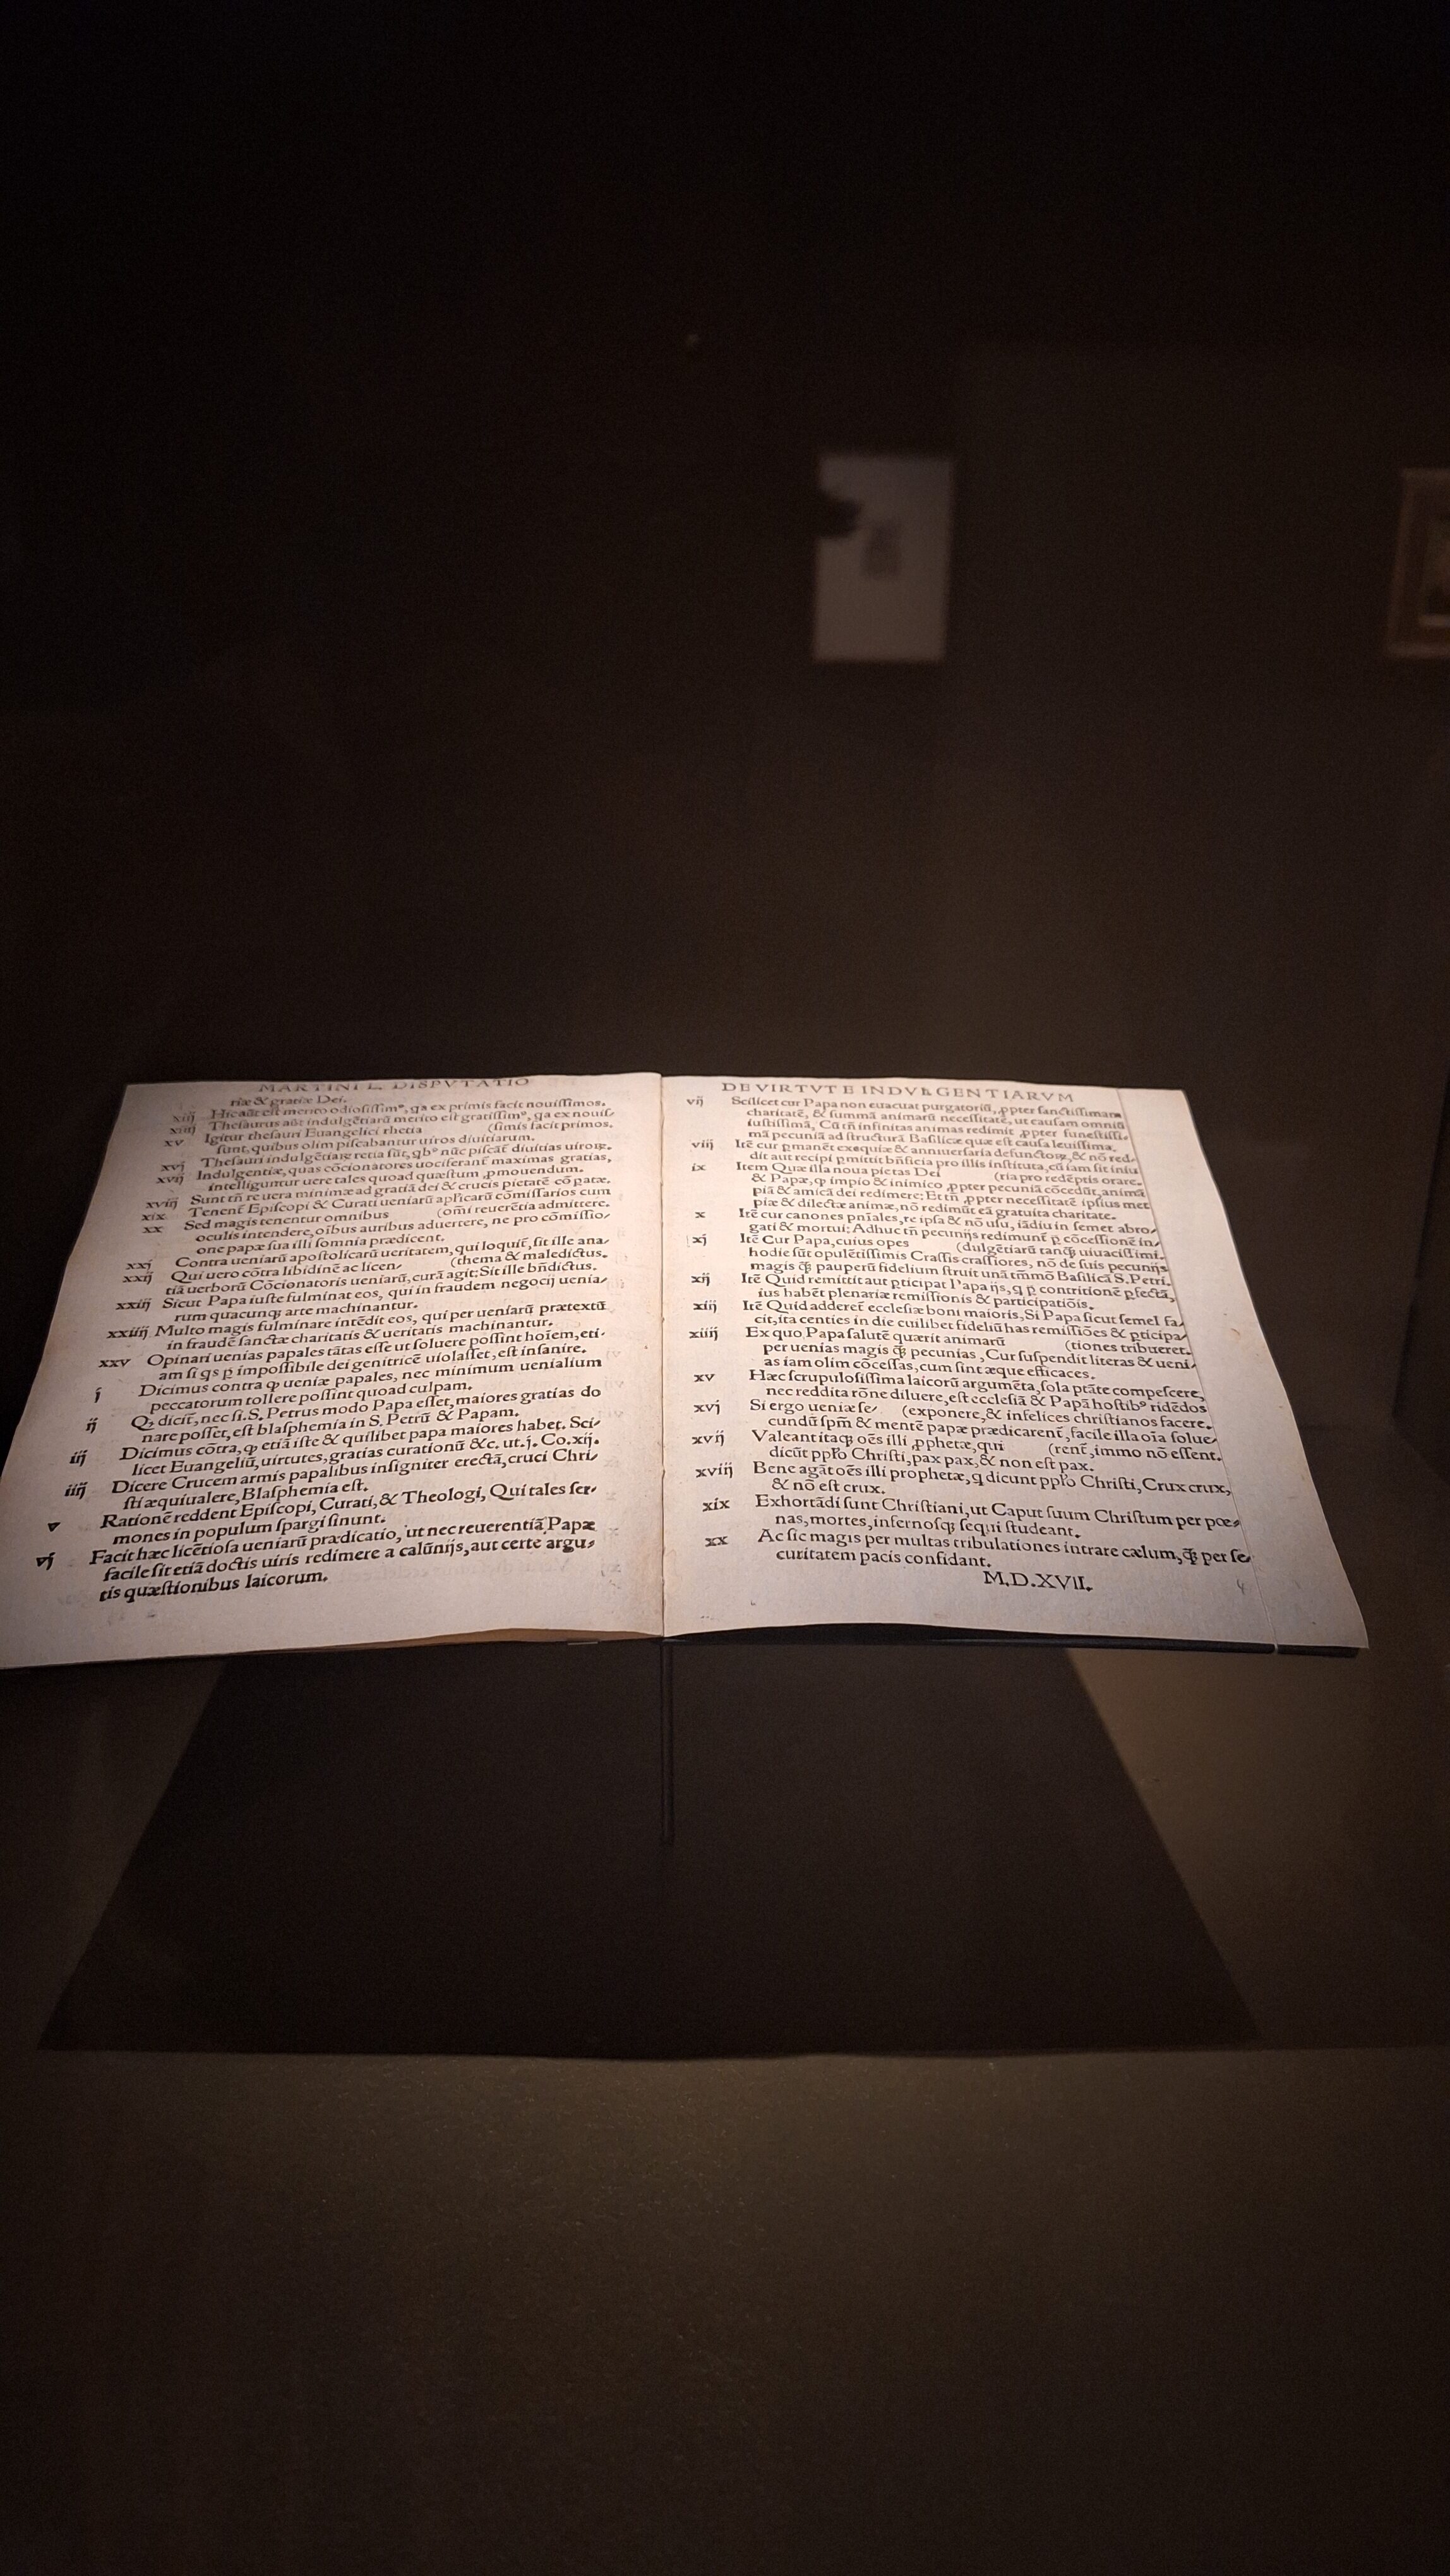 MARTINI L. DISPVTATIO
riæ & gratiæ Dei.
xiij Hic aūt est merito odiosissim⁹, qa ex primis facit nouissimos.
xiiij Thesaurus aūt indulgētiarū merito est gratissim⁹, qa ex nouis/
xv Igitur thesauri Euangelici rhetia (simis facit primos.
sunt, quibus olim piscabantur uiros diuitiarum.
xvj Thesauri indulgētiaꝝ retia sūt, qb⁹ nūc piscāt diuitias uiroꝝ.
xvij Indulgentiæ, quas cōcionatores uociferant maximas gratias,
intelliguntur uere tales quoad quæstum ꝓmouendum.
xviij Sunt tñ re uera minimæ ad gratiā dei & crucis pietatē cōpatæ.
xix Tenent Episcopi & Curati ueniarū aplicarū cōmissarios cum
xx Sed magis tenentur omnibus (omi reuerētia admittere.
oculis intendere, oībus auribus aduertere, ne pro cōmissio/
one papæ sua illi somnia prædicent.
xxj Contra ueniarū apostolicarū ueritatem, qui loquit, sit ille ana/
xxij Qui uero cōtra libidinē ac licen/ (thema & maledictus.
tiā uerborū Cōcionatoris ueniarū, curā agit: Sit ille bñdictus.
xxiij Sicut Papa iuste fulminat eos, qui in fraudem negocij uenia/
rum quacunqꝫ arte machinantur.
xxiiij Multo magis fulminare intēdit eos, qui per ueniarū prætextū
in fraudē sanctæ charitatis & ueritatis machinantur.
xxv Opinari uenias papales tātas esse ut soluere possint hoīem, eti/
am si qs ꝑ impossibile dei genitricē uiolasset, est insanire.
j Dicimus contra ꝙ ueniæ papales, nec minimum uenialium
peccatorum tollere possint quoad culpam.
ij Qꝫ dicit, nec si. S. Petrus modo Papa esset, maiores gratias do
nare posset, est blasphemia in S. Petrū & Papam.
iij Dicimus cōtra, ꝙ etiā iste & quilibet papa maiores habet. Sci/
licet Euangeliū, uirtutes, gratias curationū &c. ut. j. Co. xij.
iiij Dicere Crucem armis papalibus insigniter erectā, cruci Chri/
sti æquiualere, Blasphemia est.
v Rationē reddent Episcopi, Curati, & Theologi, Qui tales ser/
mones in populum spargi sinunt.
vj Facit hæc licētiosa ueniarū prædicatio, ut nec reuerentiā Papæ
facile sit etiā doctis uiris redimere a calūnijs, aut certe argu/
tis quæstionibus laicorum.
DE VIRTVTE INDVLGENTIARVM
vij Scilicet cur Papa non euacuat purgatoriū, ꝓpter sanctissimam
charitatē, & summā animarū necessitatē, ut causam omniū
iustissimā, Cū tñ infinitas animas redimit ꝓpter funestissi/
mā pecuniā ad structurā Basilicæ quæ est causa leuissima.
viij Itē cur ꝑmanēt exequiæ & anniuersaria defunctoꝝ, & nō red/
dit aut recipi ꝑmittit bñficia pro illis instituta, cū iam sit iniu
ix Item Quæ illa noua pietas Dei (ria pro redēptis orare.
& Papæ, ꝙ impio & inimico ꝓpter pecuniā cōcedūt, animā
piā & amicā dei redimere: Et tñ ꝓpter necessitatē ipsius met
piæ & dilectæ animæ, nō redimūt eā gratuita charitate.
x Itē cur canones pnīales, re ipsa & nō usu, iādiu in semet abro/
gati & mortui: Adhuc tñ pecunijs redimunt ꝑ cōcessionē in/
xj Itē Cur Papa, cuius opes (dulgētiarū tanqꝫ uiuacissimi.
hodie sūt opulētissimis Crassis crassiores, nō de suis pecunijs
magis qꝫ pauperū fidelium struit unā tmmō Basilicā S. Petri.
xij Itē Quid remittit aut ꝑticipat Papa ijs, q ꝑ contritionē ꝑfectā,
ius habēt plenariæ remissionis & participatiōis.
xiij Itē Quid adderet ecclesiæ boni maioris, Si Papa sicut semel fa/
cit, ita centies in die cuilibet fideliū has remissiōes & ꝑticipa/
xiiij Ex quo Papa salutē quærit animarū (tiones tribueret.
per uenias magis qꝫ pecunias, Cur suspendit literas & ueni/
as iam olim cōcessas, cum sint æque efficaces.
xv Hæc scrupulosissima laicorū argumēta, sola ptāte compescere,
nec reddita rōne diluere, est ecclesiā & Papā hostib⁹ ridēdos
xvj Si ergo ueniæ se/ (exponere, & infelices christianos facere.
cundū spm & mentē papæ prædicarent, facile illa oīa solue/
xvij Valeant itaqꝫ oēs illi ꝓphetæ, qui (rent, immo nō essent.
dicūt pplo Christi, pax pax, & non est pax.
xviij Bene agāt oēs illi prophetæ, q dicunt pplo Christi, Crux crux,
& nō est crux.
xix Exhortādi sunt Christiani, ut Caput suum Christum per pœ/
nas, mortes, infernosqꝫ sequi studeant.
xx Ac sic magis per multas tribulationes intrare cælum, qꝫ per se/
curitatem pacis confidant.
M.D.XVII.